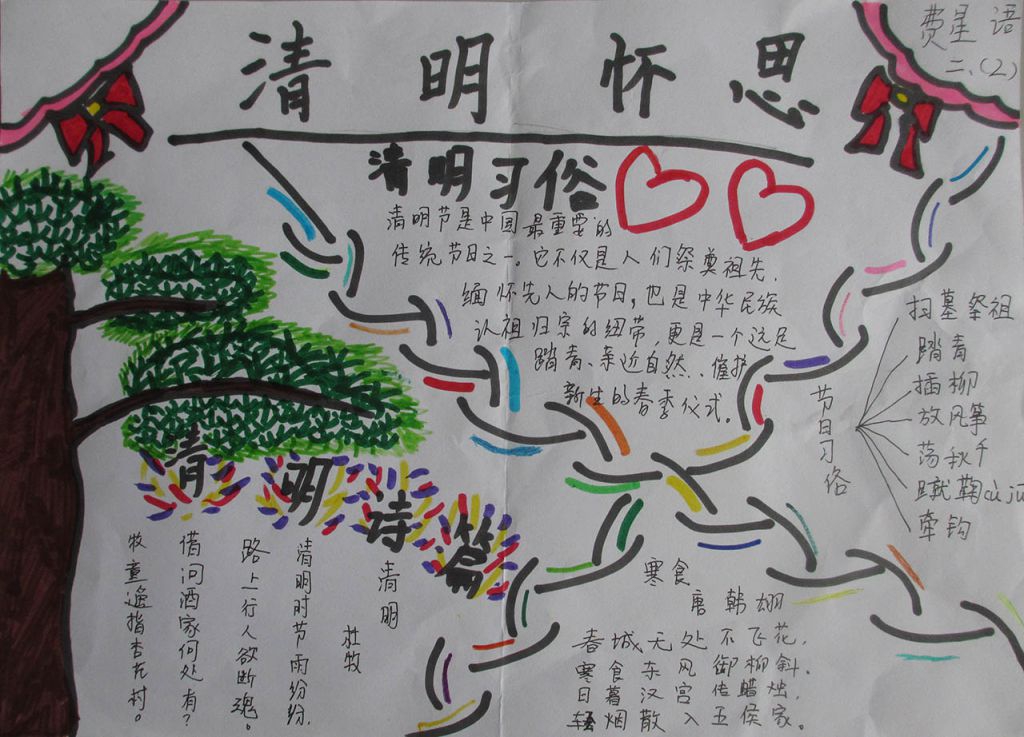 清明怀思
费星语
二、(2)
清明习俗
清明节是中国最重要的
传统节日之一。它不仅是人们祭奠祖先、
缅怀先人的节日，也是中华民族
认祖归宗的纽带，更是一个远足
踏青、亲近自然、催护
新生的春季仪式。
节日习俗
扫墓祭祖
踏青
插柳
放风筝
荡秋千
蹴鞠cù jū
牵钩
清明诗篇
清明
杜牧
清明时节雨纷纷，
路上行人欲断魂。
借问酒家何处有？
牧童遥指杏花村。
寒食
唐 韩翃
春城无处不飞花，
寒食东风御柳斜。
日暮汉宫传蜡烛，
轻烟散入五侯家。